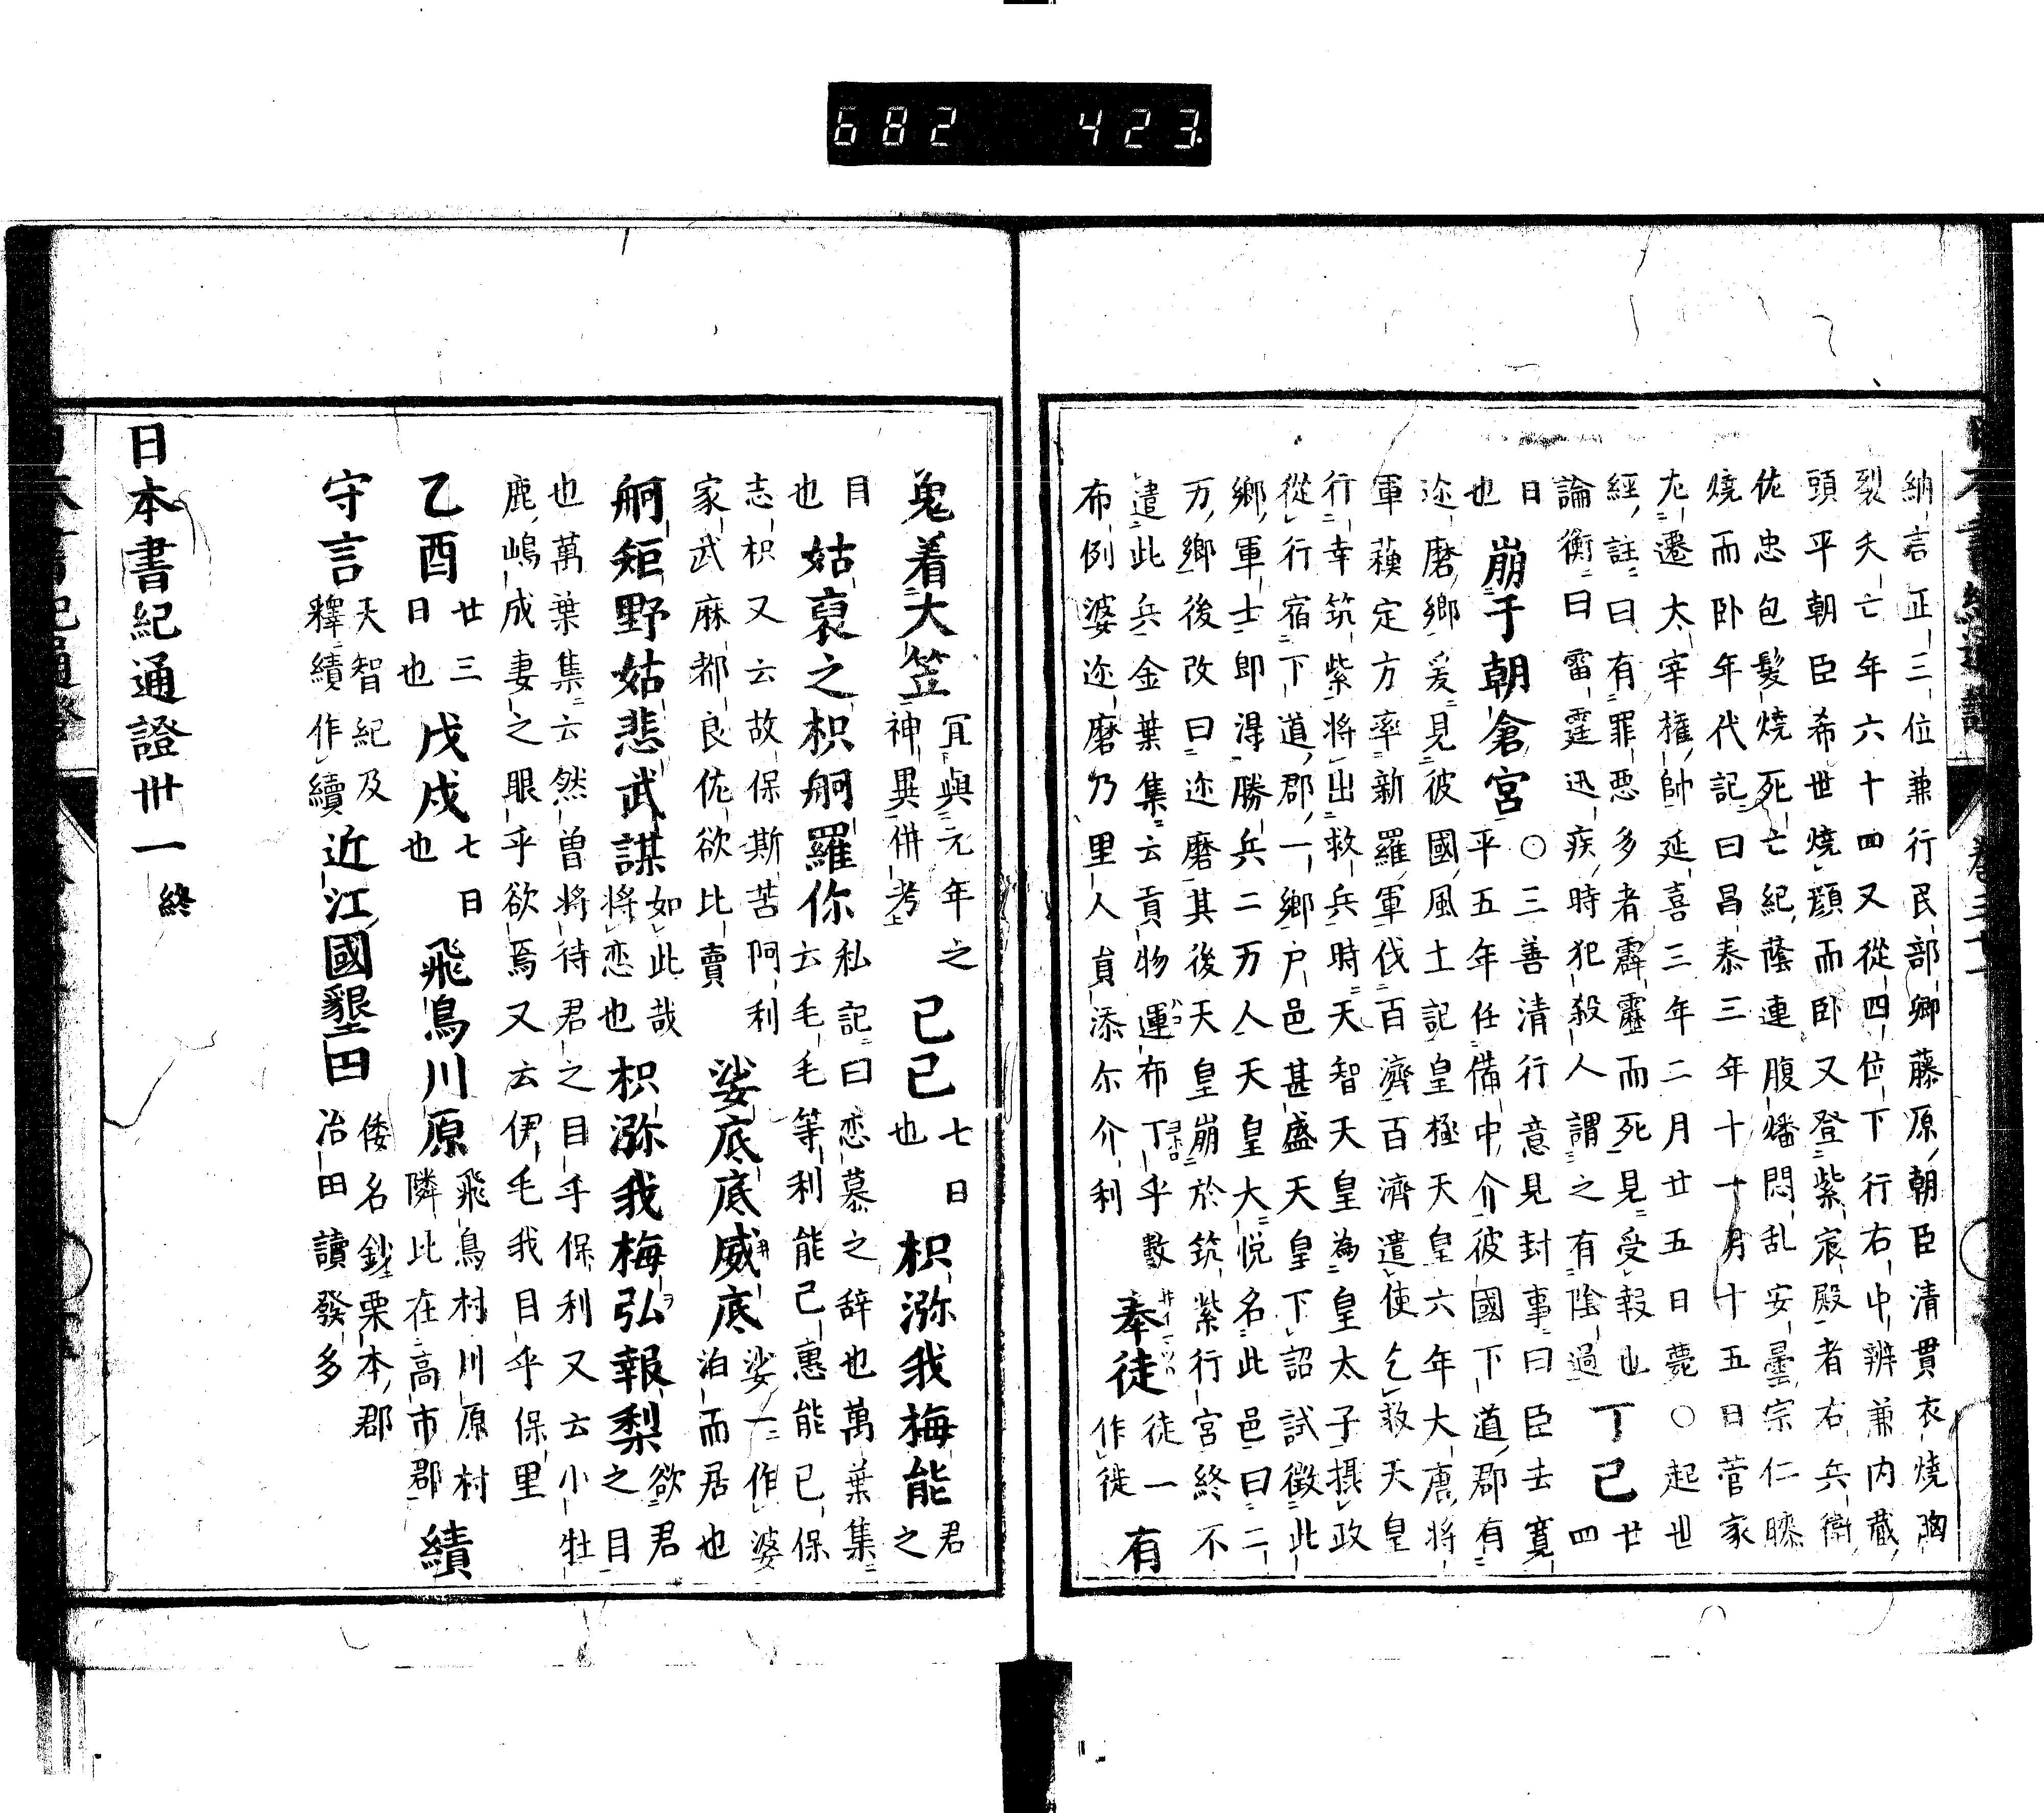 682 423
納言正三位兼行民部卿藤原朝臣清貫衣燒胸
裂夭亡年六十四又從四位下行右中辨兼内藏
頭平朝臣希世燒顔而卧又登紫宸殿者右兵衞
佐忠包髮燒死亡紀蔭連腹燔悶乱安曇宗仁膝
燒而卧年代記曰昌泰三年十一月十五日菅家
左遷太宰權帥延喜三年二月廿五日薨○起世
經註曰有罪惡多者霹靂而死見受報也 丁巳 廿四
論衡曰雷霆迅疾時犯殺人謂之有陰過
日也 崩于朝倉宮 ○三善清行意見封事曰臣去寛
平五年任備中介彼國下道郡有
迩磨鄉爰見彼國風土記皇極天皇六年大唐將
軍蘓定方率新羅軍伐百濟百濟遣使乞救天皇
行幸筑紫將出救兵時天智天皇為皇太子摂政
從行宿下道郡一鄉户邑甚盛天皇下詔試徵此
鄉軍士即淂勝兵二万人天皇大悦名此邑曰二
万鄉後改曰迩磨其後天皇崩於筑紫行宮終不
遣此兵金葉集云貢物運布丁乎數
布例婆迩磨乃里人員添尓介利 奉徒 徒一作徙 有
鬼着大笠 冝與元年之神異併考 己巳 七日也 枳瀰我梅能 君之
目也 姑裒之枳舸羅你 私記曰恋慕之辞也萬葉集
云毛毛等利能己惠能己保
志枳又云故保斯苦阿利
家武麻都良佐欲比賣 娑底底威底 娑一作婆泊而居也
舸矩野姑悲武謀 如此哉將恋也 枳瀰我梅弘報梨 欲君之目
也萬葉集云然曽將待君之目乎保利又云小牡
鹿嶋成妻之眼乎欲焉又云伊毛我目乎保里
乙酉 廿三日也 戊戌 七日也 飛鳥川原 飛鳥村川原村隣比在高市郡 績
守言 天智紀及釋績作續 近江國墾田 倭名鈔栗本郡治田讀發多
日本書紀通證卅一終